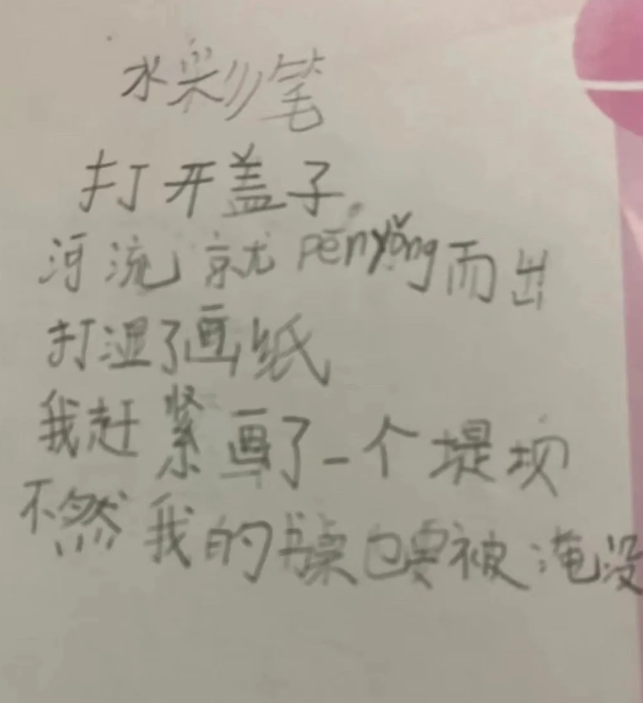 水彩笔
打开盖子
河流就pēnyǒng而出
打湿了画纸
我赶紧画了一个堤坝
不然我的书桌也要被淹没